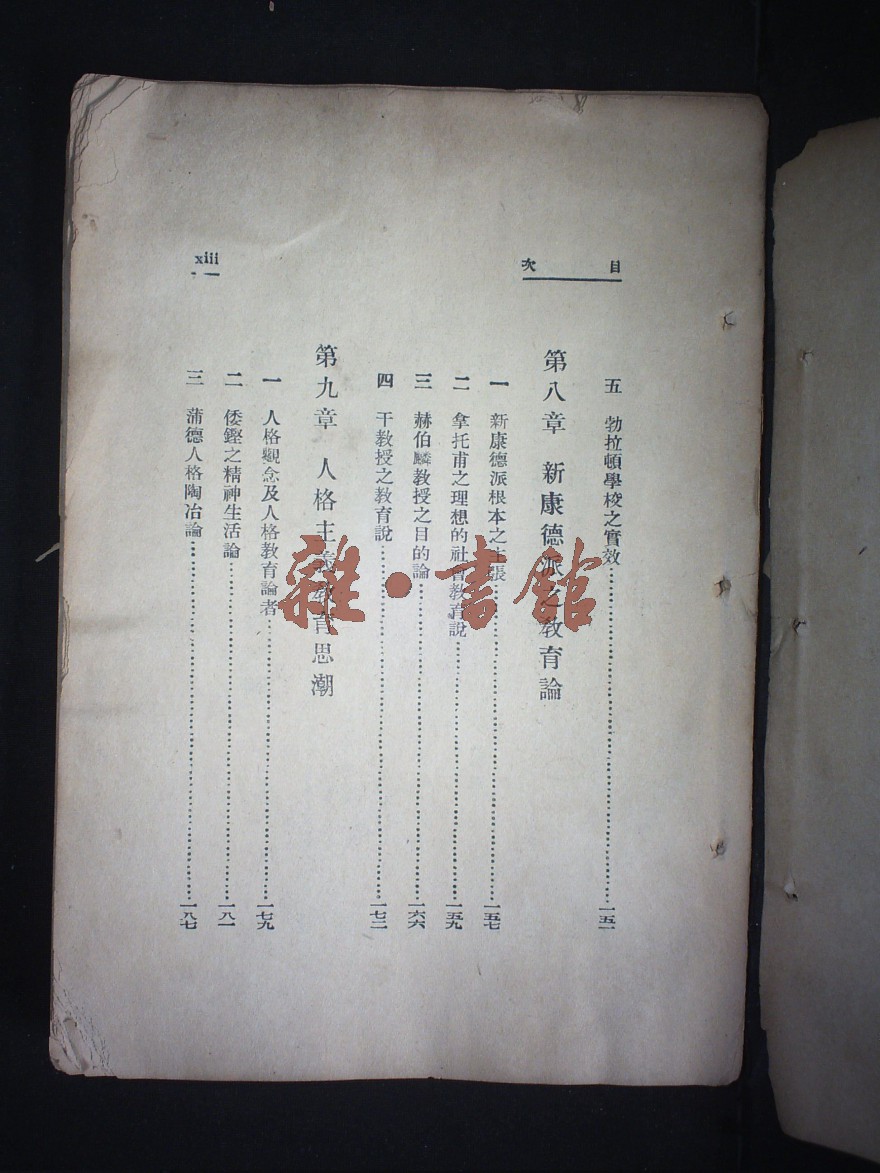 目次
xiii
五 勃拉頓學校之實效 一五一
第八章 新康德派之教育論
一 新康德派根本之主張 一五七
二 拿托甫之理想的社會教育說 一五九
三 赫伯麟教授之目的論 一六六
四 干教授之教育說 一七二
第九章 人格主義教育思潮
一 人格觀念及人格教育論者 一七九
二 倭鏗之精神生活論 一八一
三 蒲德人格陶冶論 一八七
雜·書館